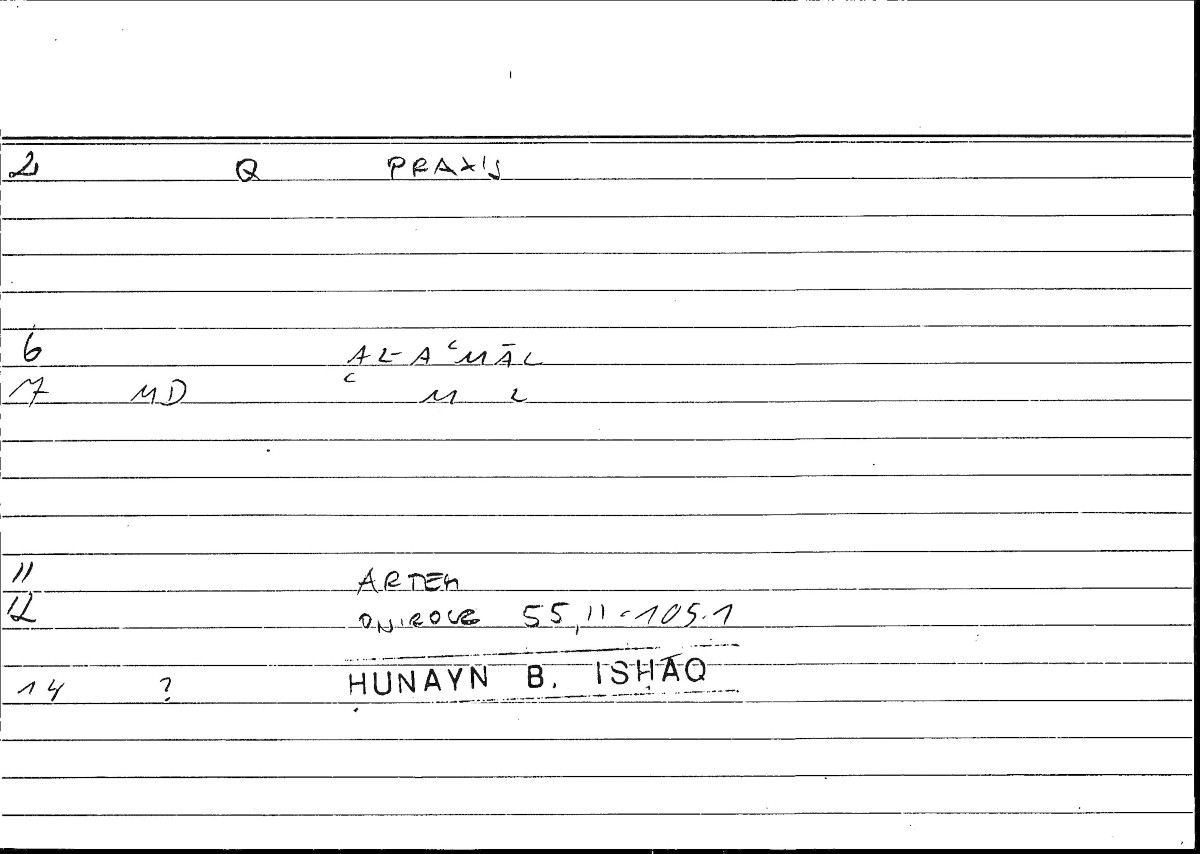 2 Q PRAXIS
6 AL-AʿMĀL
7 MD ʿ M L
11 ARTEM
12 ONIROCR 55,11-105.1
14 ? ḤUNAYN B. ISḤĀQ